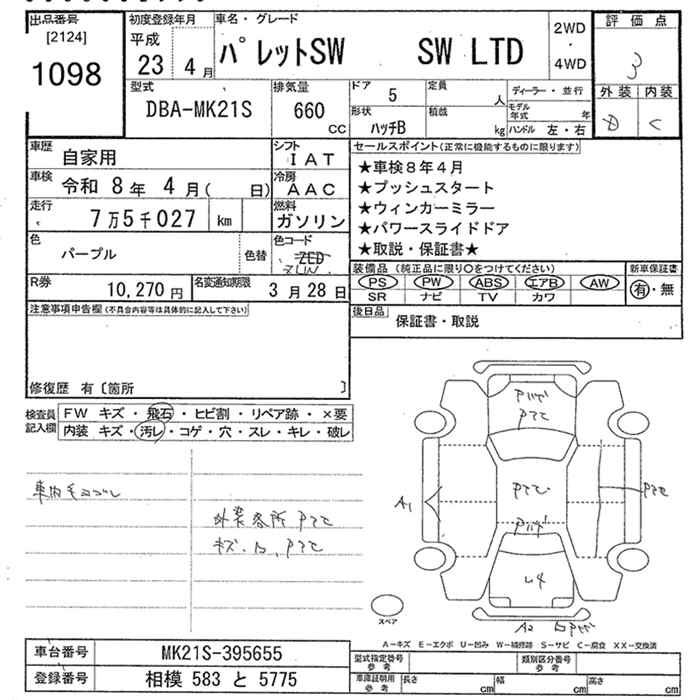 出品番号
[2124]
1098
初度登録年月
平成
23 4月
車名・グレード
パレットSW SW LTD
2WD
・
4WD
評価点
3
外装 内装
D C
型式
DBA-MK21S
排気量
660
CC
ドア
5
定員
人
形状
ハッチB
積載
kg
ディーラー・並行
モデル年式 年
ハンドル 左・右
車歴
自家用
シフト
IAT
車検
令和 8年 4月( 日)
冷房
AAC
走行
7万5千027 km
燃料
ガソリン
色
パープル
色替
色コード
ZED
ZUN
R券
10,270円
名変通知期限
3月28日
セールスポイント(正常に機能するものに限ります)
★車検8年4月
★プッシュスタート
★ウィンカーミラー
★パワースライドドア
★取説・保証書★
装備品 (純正品に限り○をつけてください)
PS PW ABS エアB AW
SR ナビ TV カワ
新車保証書
有・無
後日品
保証書・取説
注意事項申告欄(不具合内容等は具体的に記入して下さい)
修復歴 有〔箇所 〕
検査員記入欄
FW キズ・飛石・ヒビ割・リペア跡・×要
内装 キズ・汚レ・コゲ・穴・スレ・キレ・破レ
外装各所
A1
A2
スペア
A-キズ E-エクボ U-凹み W-補修跡 S-サビ C-腐食 XX-交換済
車台番号
MK21S-395655
登録番号
相模 583 と 5775
型式指定番号
参考
類別区分番号
参考
車庫証明用
参考
長さ cm
幅 cm
高さ cm